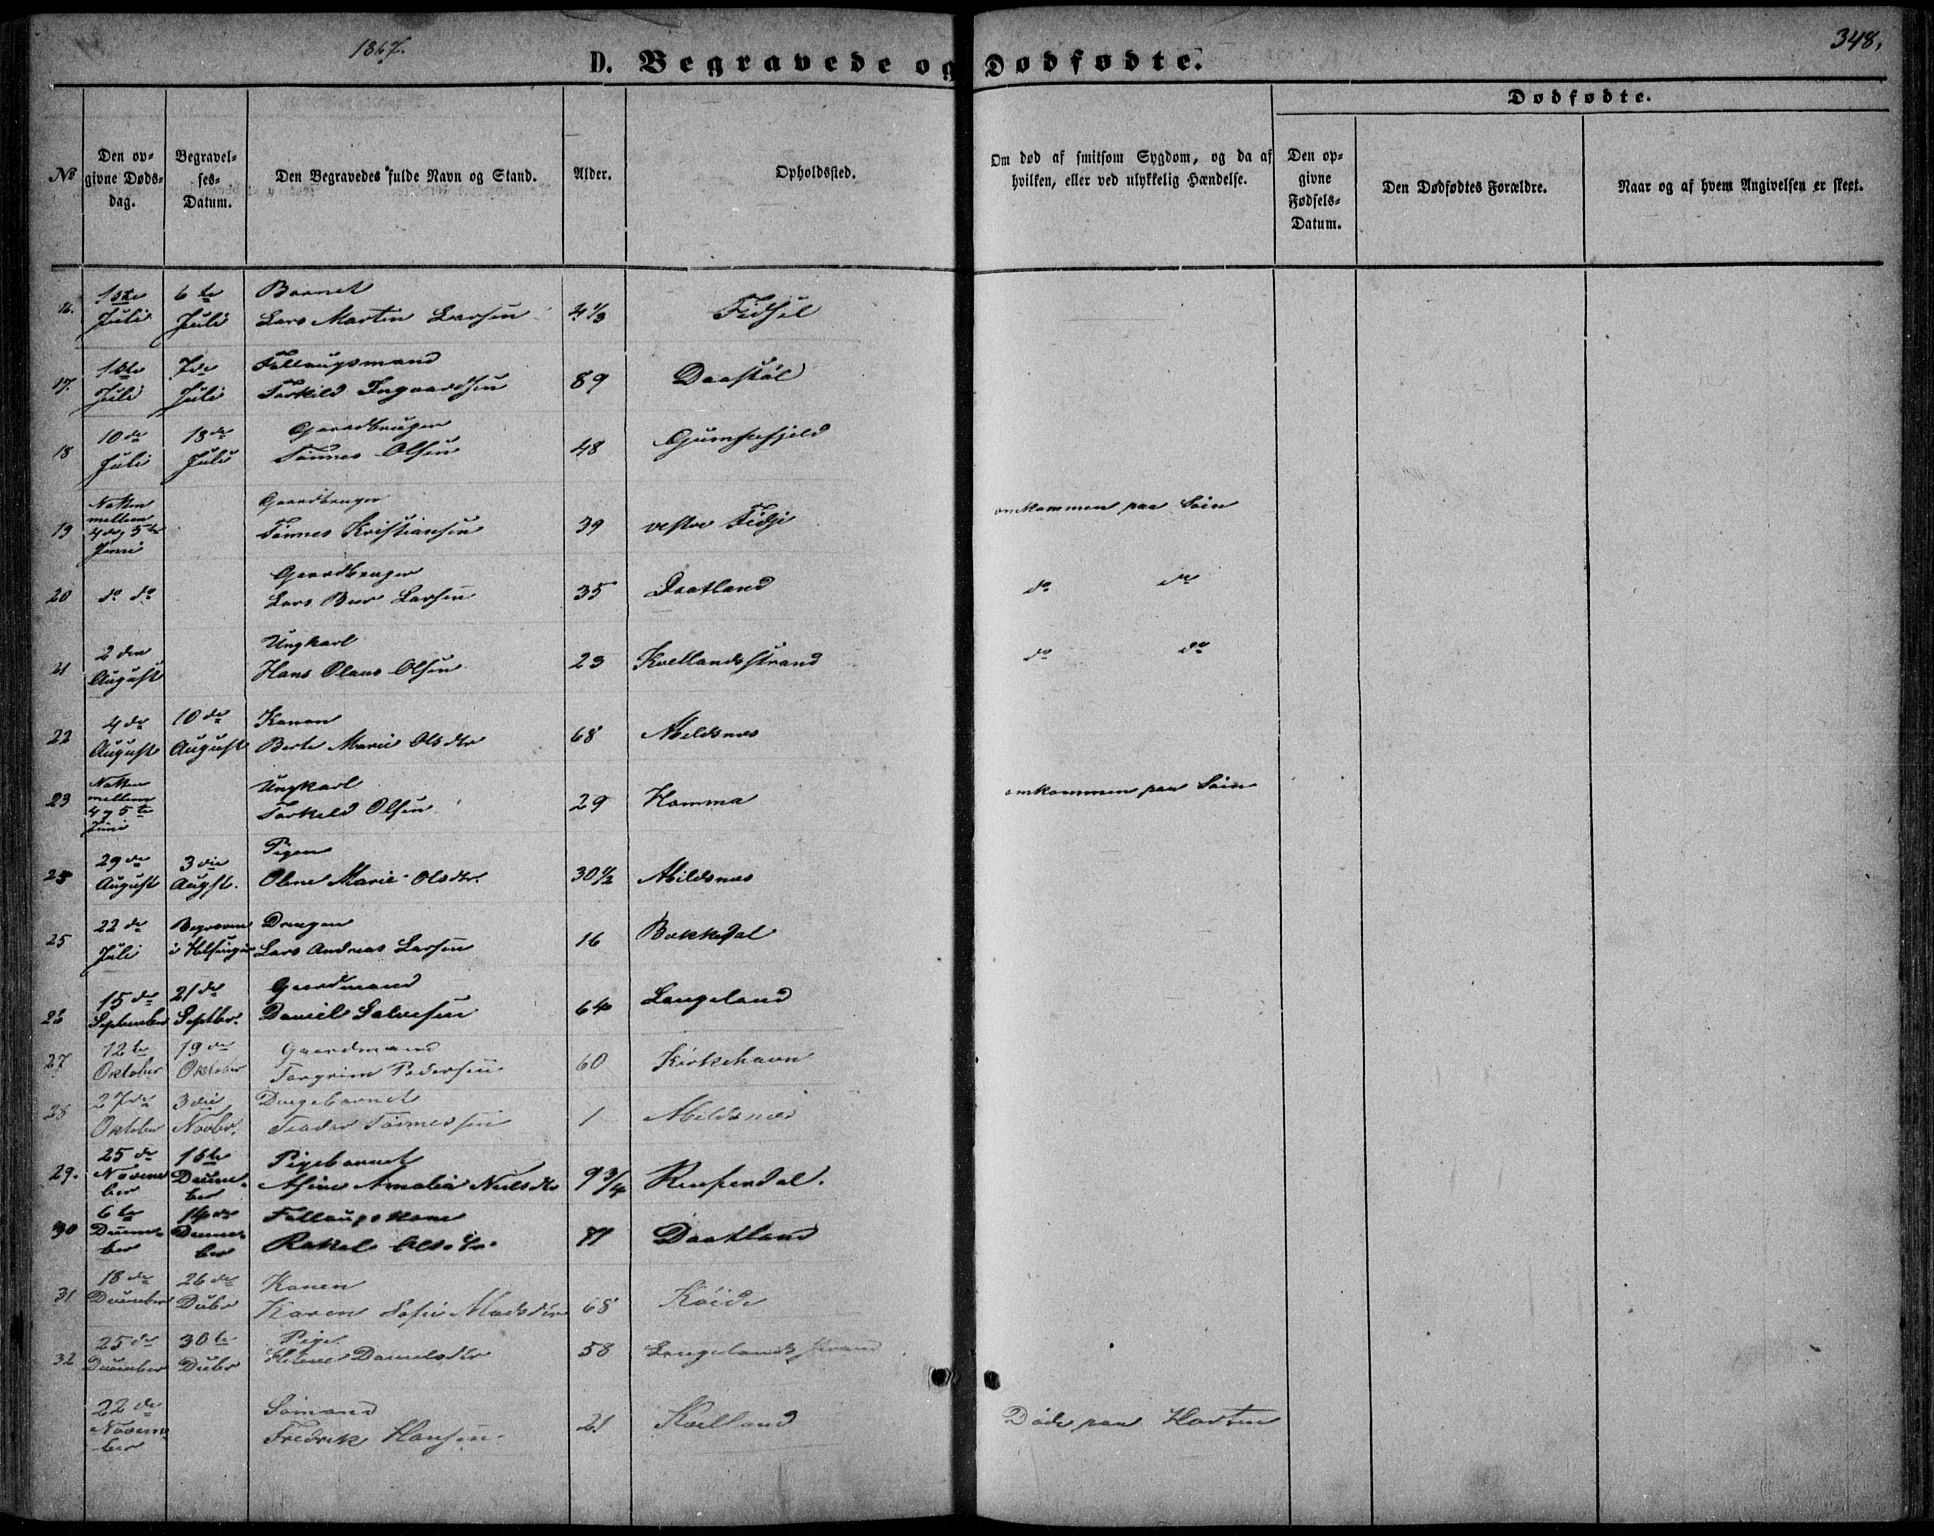 1867.
348.
D. Begravede og Dødfødte.
Dødfødte.
No
Den opgivne Dødsdag.
Begravelses-Datum.
Den Begravedes fulde Navn og Stand.
Alder.
Opholdssted.
Om død af smitsom Sygdom, og da af hvilken, eller ved ulykkelig Hændelse.
Den opgivne Fødsels-Datum.
Den Dødfødtes Forældre.
Naar og af hvem Angivelsen er skeet.
16. 1ste Juli 6te Juli Barnet Lars Martin Larsen 4 1/3 Fidsel
17. 1ste Juli 7de Juli Follaugsmand Torkild Ingvardsen 89 Daastöl
18 10de Juli 18de Juli Gaardbruger Tönnes Olsen 48 Gumpefjeld
19 Natten mellem 4de og 5te Juni Gaardbruger Tönnes Kristiansen 39 vestre Fidje omkommen paa Söen
20 do do Gaardbruger Lars Bur Larsen 35 Daatland do do
21 2den August Ungkarl Hans Olaus Olsen 23 Kvellandsstrand do do
22 4de August 10de August Konen Berte Marie Olsdtr 68 Abildsnæs
23 Natten mellem 4 og 5te Juni Ungkarl Torkeld Olsen 29 Homma omkommen paa Söen
25 29de August 3die Augst. Pigen Olene Marie Olsdtr. 30 1/2 Abildsnæs
25 22de Juli Begraven i Helsingør Drengen Lars Andreas Larsen 16 Bakkedal
26 15de September 21de Septbr. Gaardmand Daniel Salvesen 64 Langeland
27 12te Oktober 19de Oktober Gaardmand Torgrim Pedersen 60 Kirkehavn
28 27de Oktober 3die Novbr. Drengebarnet Teodor Tönnessen 1 Abildsnæs
29. 25de November 1ste December Pigebarnet Asine Amalia Nielsdtr 9 3/4 Rensendal.
30 6te December 14de December Follaugskone Rakel Olsdtr. 81 Daatland
31 18de December 26de Decbr Konen Karen Sofie Madsdtr 68 Röide
32 25de December 30te Decbr Pige Helene Danielsdtr 58 Langelandsstrand
22de November Sömand Fredrik Hansen. 21 Kvelland Döde paa Horten